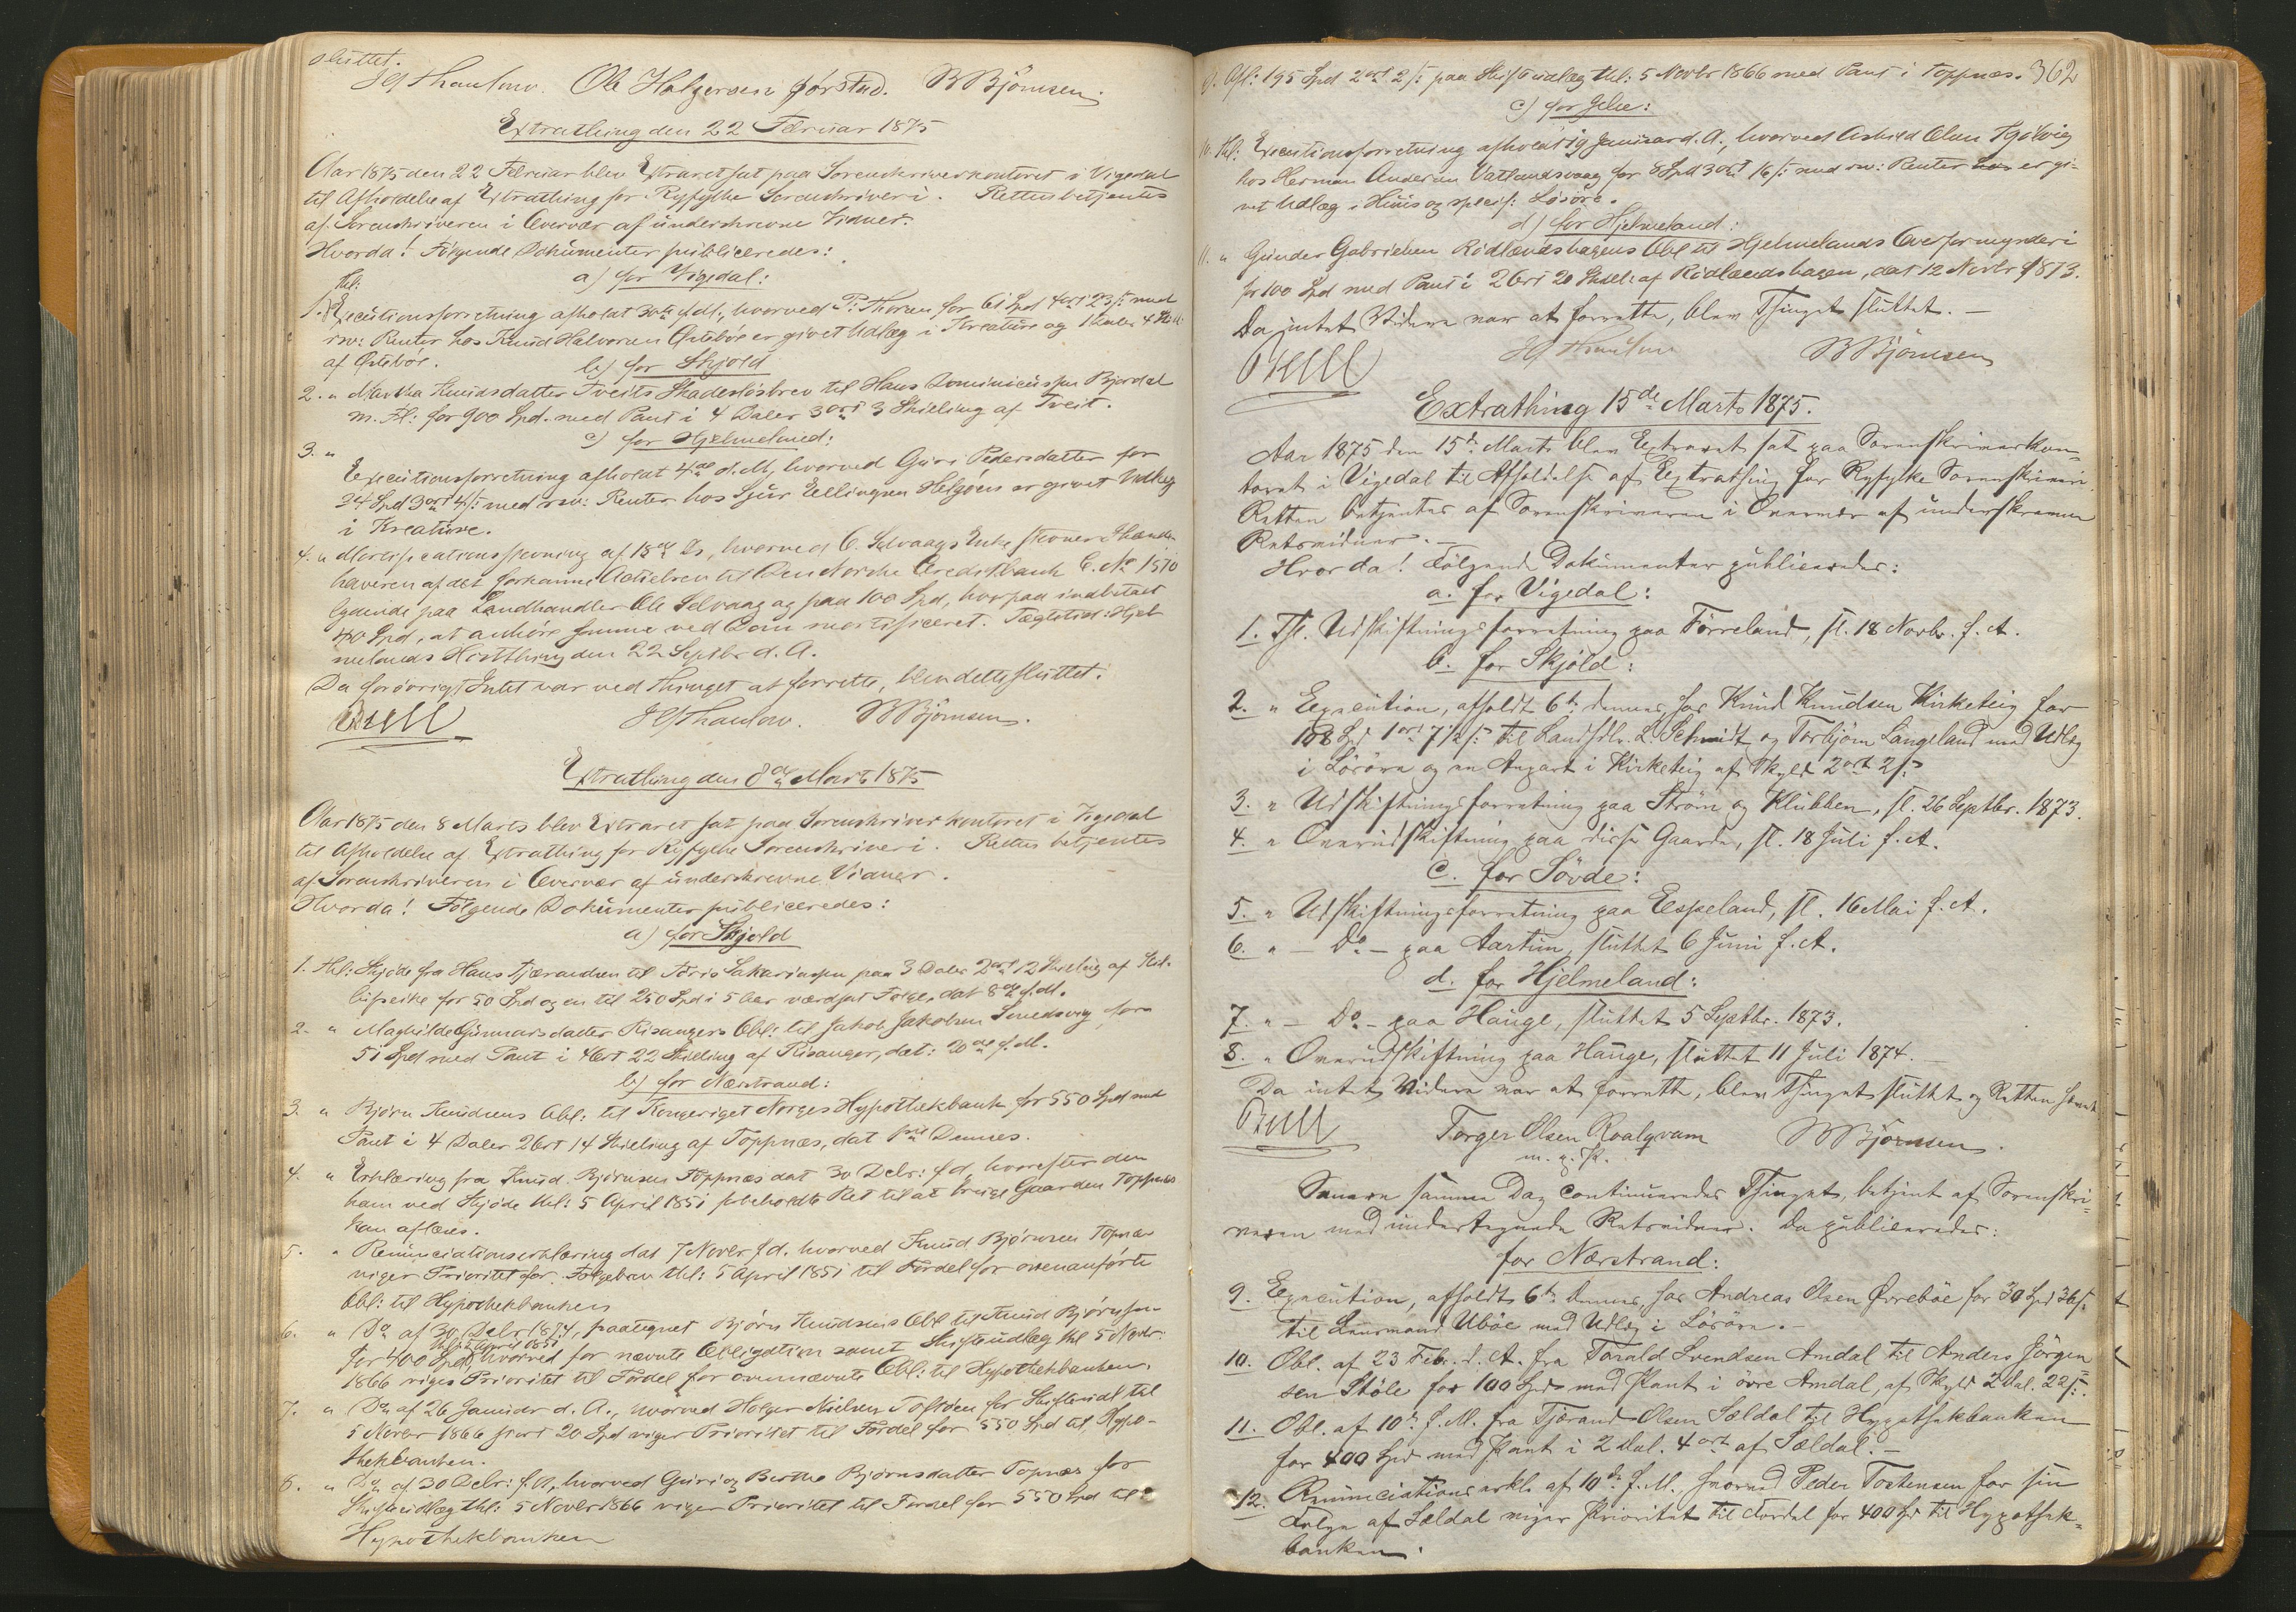 sluttet.
Ole Halgersen Førstad. B Bjørnsen.
Extrathing den 22 Februar 1875
Aar 1875 den 22 Februar blev Extraret sat paa Sorenskriverkontoret i Vigedal
til Afholdelse af Extrathing for Ryfylke Sorenskriveri. Retten betjentes
af Sorenskriveren i Overvær af underskrevne Vidner.
Hvorda! Følgende Dokumenter publiceredes:
a) for Vigedal:
thl:
1. Executionsforretning afholdt 30te f. M., hvorved P. Thorsen for 61 Spd 4 ort 23 s: med
rsv: Renter hos Knud Halvorsen Østebø er givet Udlæg i Kreature og 1 Daler 4
af Østebø.
b) for Skjold
2. " Martha Knudsdatter Tveits Skadesløsbrev til Hans Dominicussen Bjordal
m. Fl: for 900 Spd. med Pant i 4 Daler 3 ort 3 Skilling af Tveit.
c) for Hjelmeland:
3. "
Executionsforretning afholdt 4de d. M., hvorved Guri Pedersdatter for
24 Spd 3 ort 4 s: med rsv: Renter hos Sjur Ellingsen Helgøen er givet Udlæg
i Kreature.
4. " Mortificationsstevning af 18de ds, hvorved C. Selvaags Enke stevner Ihænde-
haveren af det forkomne Actiebrev til Den Norske Creditbank C. No 1510
lydende paa Landhandler Ole Selvaag og paa 100 Spd, hvorpaa indbetalt
40 Spd, at anhøre samme ved Dom mortificeret. Tægtetid: Hjel-
melands Høstthing den 22 Septbr d. A.
Da forøvrigt Intet var ved Thinget at forrette, blev dette sluttet.
Buell B Bjørnsen.
Extrathing den 8de Marts 1875
Aar 1875 den 8 Marts blev Extraret sat paa Sorenskriverkontoret i Vigedal
til Afholdelse af Extrathing for Ryfylke Sorenskriveri. Retten betjentes
af Sorenskriveren i Overvær af underskrevne Vidner.
Hvorda! Følgende Dokumenter publiceredes:
a) for Skjold
1. thl: Skjøde fra Hans Tjerandsen til Joris Sakariassen paa 3 Daler 2 ort 12 Skilling af
for 50 Spd og en til 250 Spd i 5 Aar værdsat Følge, dat 8de f. M.
2. " Maghilde Gunnarsdatter Risangers Obl: til Jakob Jakobsen Smedsvig for
51 Spd med Pant i 4 ort 22 Skilling af Risanger, dat: 20de f. M.
b) for Nærstrand:
3. " Bjørn Knudsens Obl: til Kongeriget Norges Hypothekbank for 550 Spd med
Pant i 4 Daler 2 ort 14 Skilling af Toppnæs, dat 1ste Dennes.
4. " Erklæring fra Knud Bjørnsen Toppnæs dat 30 Decbr: f. A., hvorefter den
ham ved Skjøde thl: 5 April 1851 forbeholdte Ret til at bruge Gaarden Toppnæs
kan aflæses.
5. " Renunciationserklæring dat 7 Novbr f. A. hvorved Knud Bjørnsen Topnæs
viger Prioritet for Følgebrev thl: 5 April 1851 til Fordel for ovenanførte
Obl: til Hypothekbanken
6. " Do af 30 Decbr 1874, paategnet Bjørn Knudsens Obl til Knud Bjørnsen
thl: 5 April 1851
for 400 Spd, hvorved for nævnte Obligation samt Skifteudlæg thl 5 Novbr:
1866 viges Prioritet til Fordel for ovennævnte Obl: til Hypothekbanken.
7. " Do af 26 Januar d. A., hvorved Holger Nielsen Toftøen for Skifteudl thl
5 Novbr 1866 stort 20 Spd viger Prioritet til Fordel for 550 Spd til Hypo-
thekbanken.
8. " Do af 30 Decbr: f. A., hvorved Guri og Berthe Bjørnsdatter Topnæs for
Skifteudlæg thl: 5 Novbr 1866 viger Prioritet til Fordel for 550 Spd til
Hypothekbanken
9. Afl: 195 Spd 2 ort 2 s: paa Skifteudlæg thl: 5 Novbr 1866 med Pant i Toppnæs. 362
c) for Jelse:
10. thl: Executionsforretning afholdt 19 Januar d. A., hvorved Aslued Olsen
hos Herman Andersen Vatlandsvaag for 8 Spd 3 ort 16 s: med rsv: Renter er gi-
vet Udlæg i Huus og specif: Løsøre.
d) for Hjelmeland:
11. " Gunder Gabrielsen Rødlandshagens Obl til Hjelmelands Overformynderi
for 100 Spd med Pant i 2 ort 20 Skill: af Rødlandshagen, dat 12 Novbr 1873.
Da intet Videre var at forrette, blev Thinget sluttet. —
Buell B Bjørnsen
Extrathing 15de Marts 1875.
Aar 1875 den 15de Marts blev Extraret sat paa Sorenskriverkon-
toret i Vigedal til Afholdelse af Extrathing for Ryfylke Sorenskriveri.
Retten betjentes af Sorenskriveren i Overvær af underskrevne
Retsvidner. —
Hvorda! Følgende Dokumenter publiceredes:
a. for Vigedal:
1. Thl. Udskiftningsforretning paa Førreland, sl. 18 Novbr. f. A.
b. for Skjold:
2. " Execution, afholdt 6te dennes hos Knud Knudsen Kirketeig for
108 Spd 1 ort 7 1/2 s: til Landhdlr. L. Schmidt og Torbjørn Langeland med Udlæg
i Løsøre og en Anpart i Kirketeig af Skyld 2 ort 2 s:
3. " Udskiftningsforretning paa Strøm og Klubben, sl. 26 Septbr. 1873.
4. " Overudskiftning paa disse Gaarde, sl. 18 Juli f. A.
c. for Søvde:
5. " Udskiftningsforretning paa Espeland, sl. 16 Mai f. A.
6. " — Do — paa Aartun, sluttet 6 Juni f. A.
d. for Hjelmeland:
7. " — Do — paa Hauge, sluttet 5 Septbr. 1873.
8. " Overudskiftning paa Hauge, sluttet 11 Juli 1874. —
Da intet Videre var at forrette, blev Thinget sluttet og Retten hævet
Buell Torger Olsen Roalqvam B Bjørnsen.
m. p. P.
Senere samme Dag continueredes Thinget, betjent af Sorenskri-
veren med undertegnede Retsvidner. Da publiceredes:
for Nærstrand:
9. Execution, afholdt 6te dennes hos Andreas Olsen Ørrebøe for 30 Spd 36 s:
til Lensmand Ubøe med Udlæg i Løsøre. —
10. Obl. af 23 Febr. d. A. fra Tarald Svendsen Amdal til Anders Jørgen-
sen Støle for 100 Spd med Pant i øvre Amdal, af Skyld 2 Dal. 22 s:.
11. Obl. af 10de f. M. fra Tjerand Olsen Sældal til Hypothekbanken
for 400 Spd med Pant i 2 Dal. 4 ort af Sældal. —
12. Renunciationserkl. af 10de f. M. hvorved Peder Tostensen for sin
Følge af Sældal viger Prioritet til Fordel for 400 Spd til Hypothek-
banken.